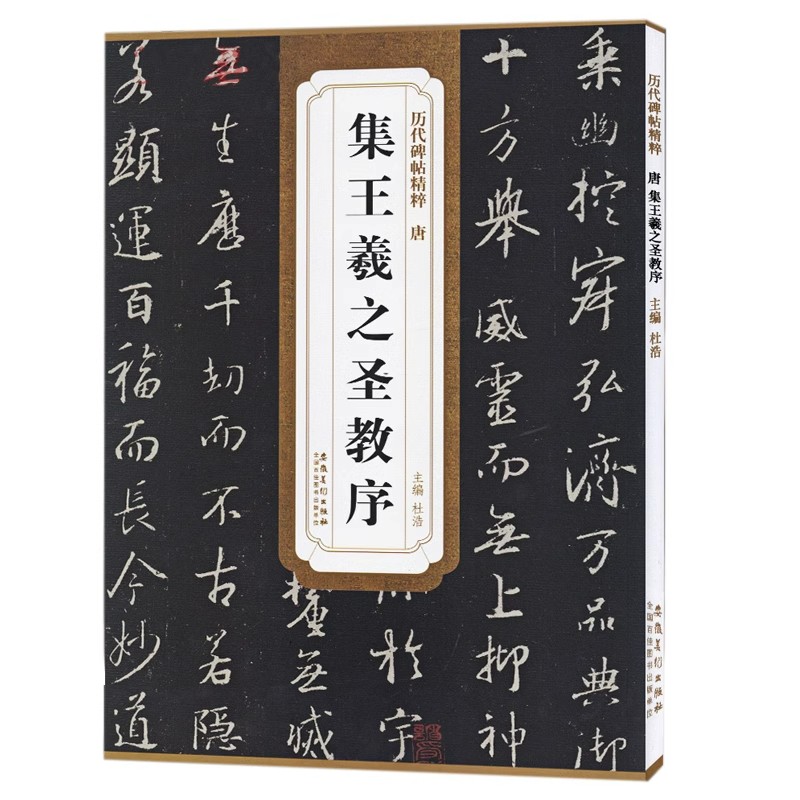 历代碑帖精粹 唐
集王羲之圣教序
主编 杜浩
安徽美术出版社
全国百佳图书出版单位
乘幽控寂弘濟万品典御
十方舉威靈而無上抑神
於宇
無滅
無生歷千劫而不古若隱
若顯運百福而長今妙道
历代碑帖精粹 唐 集王羲之圣教序 主编 杜浩
安徽美术出版社
全国百佳图书出版单位